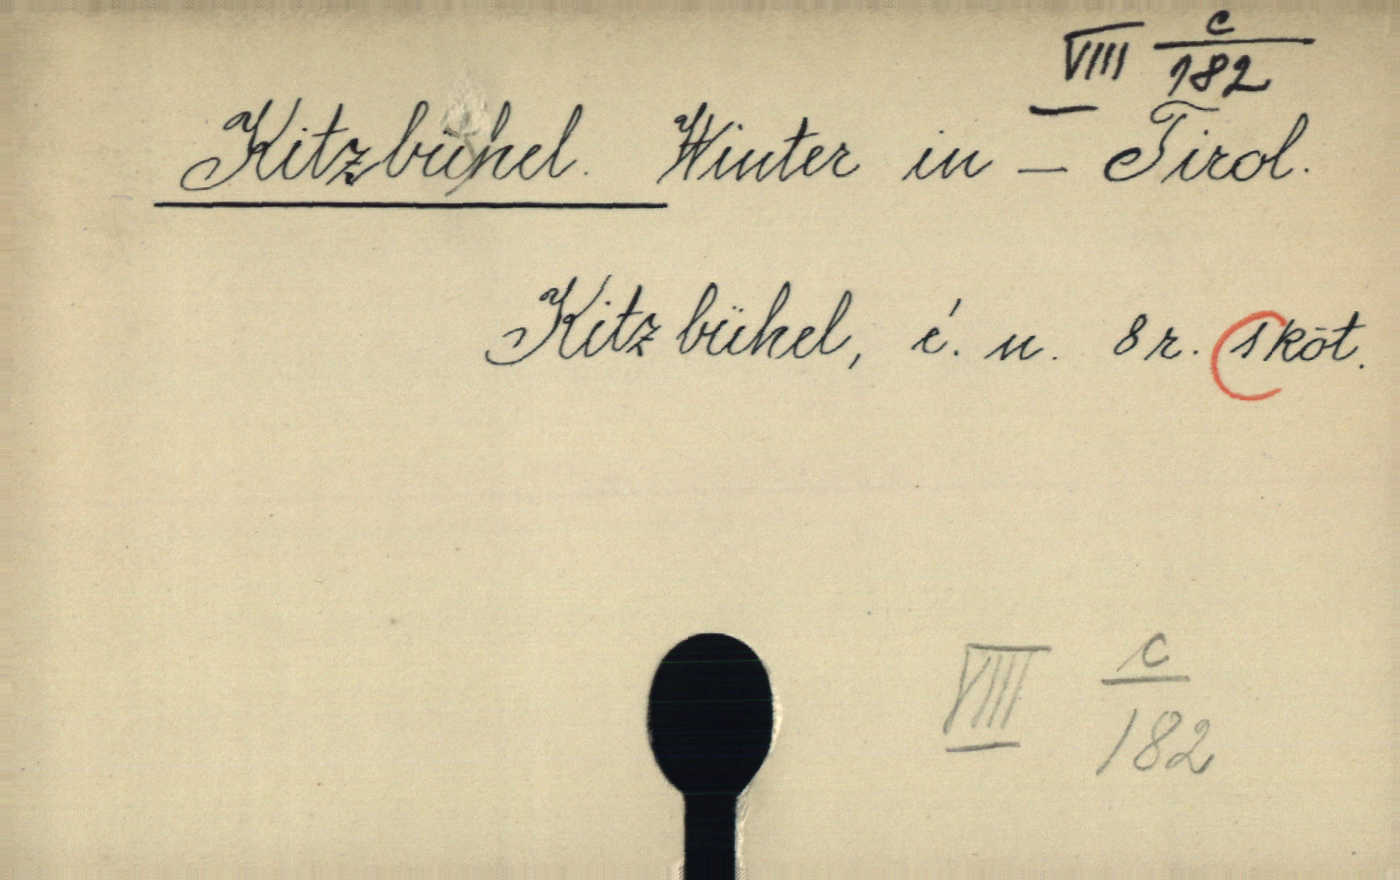 VIII c/182
Kitzbühel. Winter in – Tirol.
Kitzbühel, é. n. 8r. 1 köt.
VIII c/182